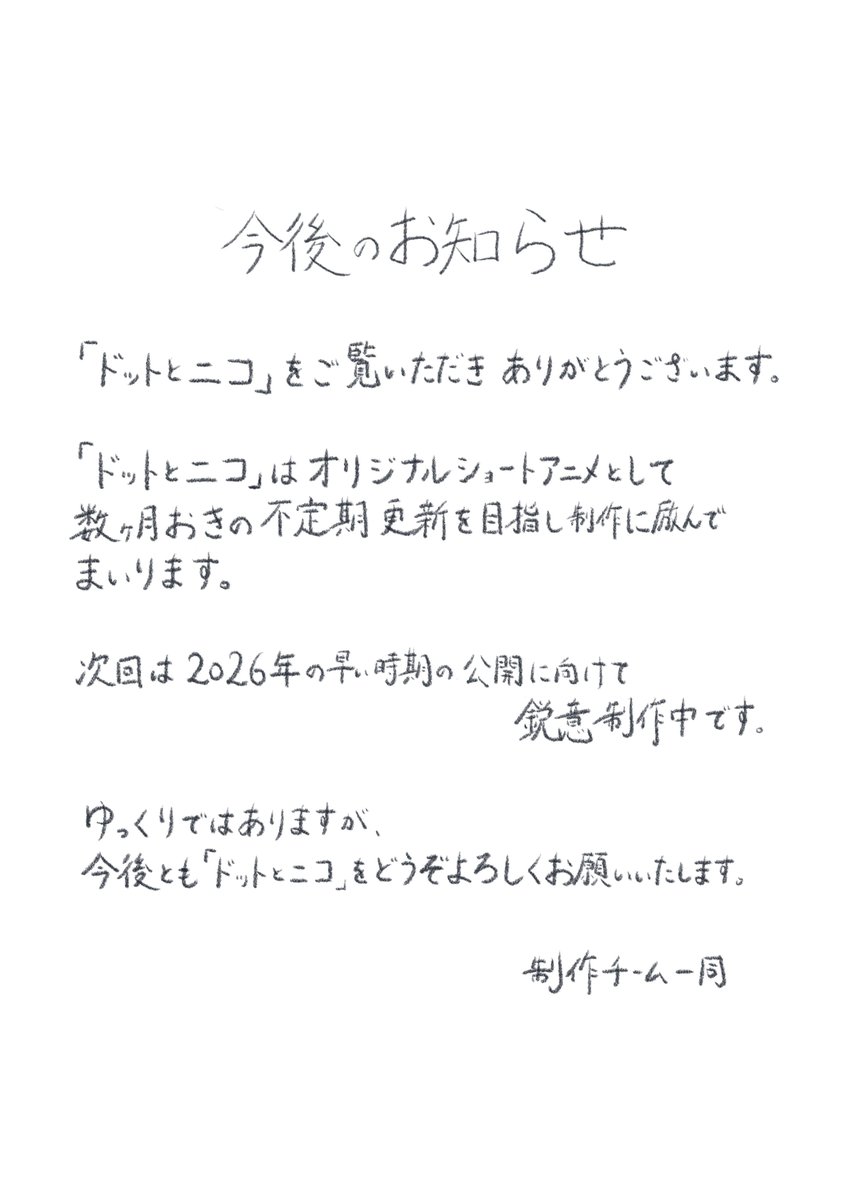 今後のお知らせ
「ドットとニコ」をご覧いただき ありがとうございます。
「ドットとニコ」はオリジナルショートアニメとして
数ヶ月おきの不定期更新を目指し制作に励んで
まいります。
次回は2026年の早い時期の公開に向けて
鋭意制作中です。
ゆっくりではありますが、
今後とも「ドットとニコ」をどうぞよろしくお願いいたします。
制作チーム一同